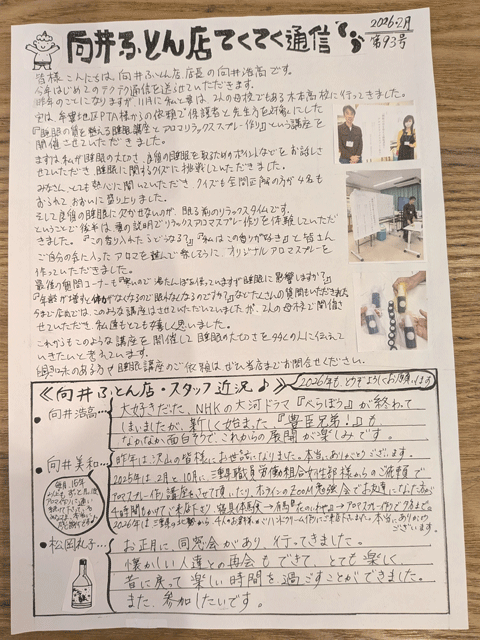 向井ふとん店てくてく通信
2026・2月
第93号
皆様こんにちは、向井ふとん店、店長の向井浩高です。
今年はじめてのテクテク通信を送らせていただきます。
昨年のことになりますが、11月に私と妻は、2人の母校でもある木本高校に行ってきました。
実は、年譽地区PTA様からの依頼で「保護者と先生方を対象にした
『睡眠の質を整える睡眠講座とアロマリラックススプレー作り』という講座を
開催させていただきました。
まずは私が睡眠の大切さ、良質の睡眠を取るためのポイントなどをお話しさ
せていただき、睡眠に関するクイズに挑戦していただきました。
みなさんとても熱心に聞いていただき、クイズも全問正解の方が4名も
おられ、おおいに盛り上りました。
そして良質の睡眠に欠かせないのが、眠る前のリラックスタイムです。
ということで後半は妻の説明でリラックスアロマスプレー作りを体験していただ
きました。『この香り入れたらどうなる?』『私はこの香りが好き』と皆さん
ご自分の気に入ったアロマを選んで楽しそうに、オリジナルアロマスプレーを
作っていただきました。
最後の質問コーナーも『寒いので湯たんぽを使っていますが睡眠に影響しますか?』
『年齢が増すと体力がなくなるので眠れなくなるのですか?』などたくさんの質問もいただきました
今までいろんな所で、このような講座はさせていただいていましたが、2人の母校で開催さ
せていただき、私達もとても嬉しく思いました。
これからもこのような講座を開催して睡眠の大切さを多くの人に伝えて
いきたいと考えています。
興味のある方や睡眠講座のご依頼はぜひ当店までお問合せください。
≪向井ふとん店・スタッフ近況♪≫
2026年も、どうぞよろしくお願い致します
向井浩高…
大好きだった、NHKの大河ドラマ『べらぼう』が終わって
しまいましたが、新しく始まった『豊臣兄弟!』も
なかなか面白そうで、これからの展開が楽しみです。
向井美和…
昨年は沢山の皆様にお世話になりました。本当にありがとうございます。
2025年は2月と10月に三重県職員労働組合
アロマスプレー作り講座をさせて頂いたり、オンラインのZOOM勉強会でお友達になった方が
4時間もかけてご来店下さり
本当にありがとう
ございます。
松岡礼子…
お正月に、同窓会があり、行ってきました。
懐かしい人達との再会もできて、とても楽しく、
昔に戻って楽しい時間を過ごすことができました。
また、参加したいです。